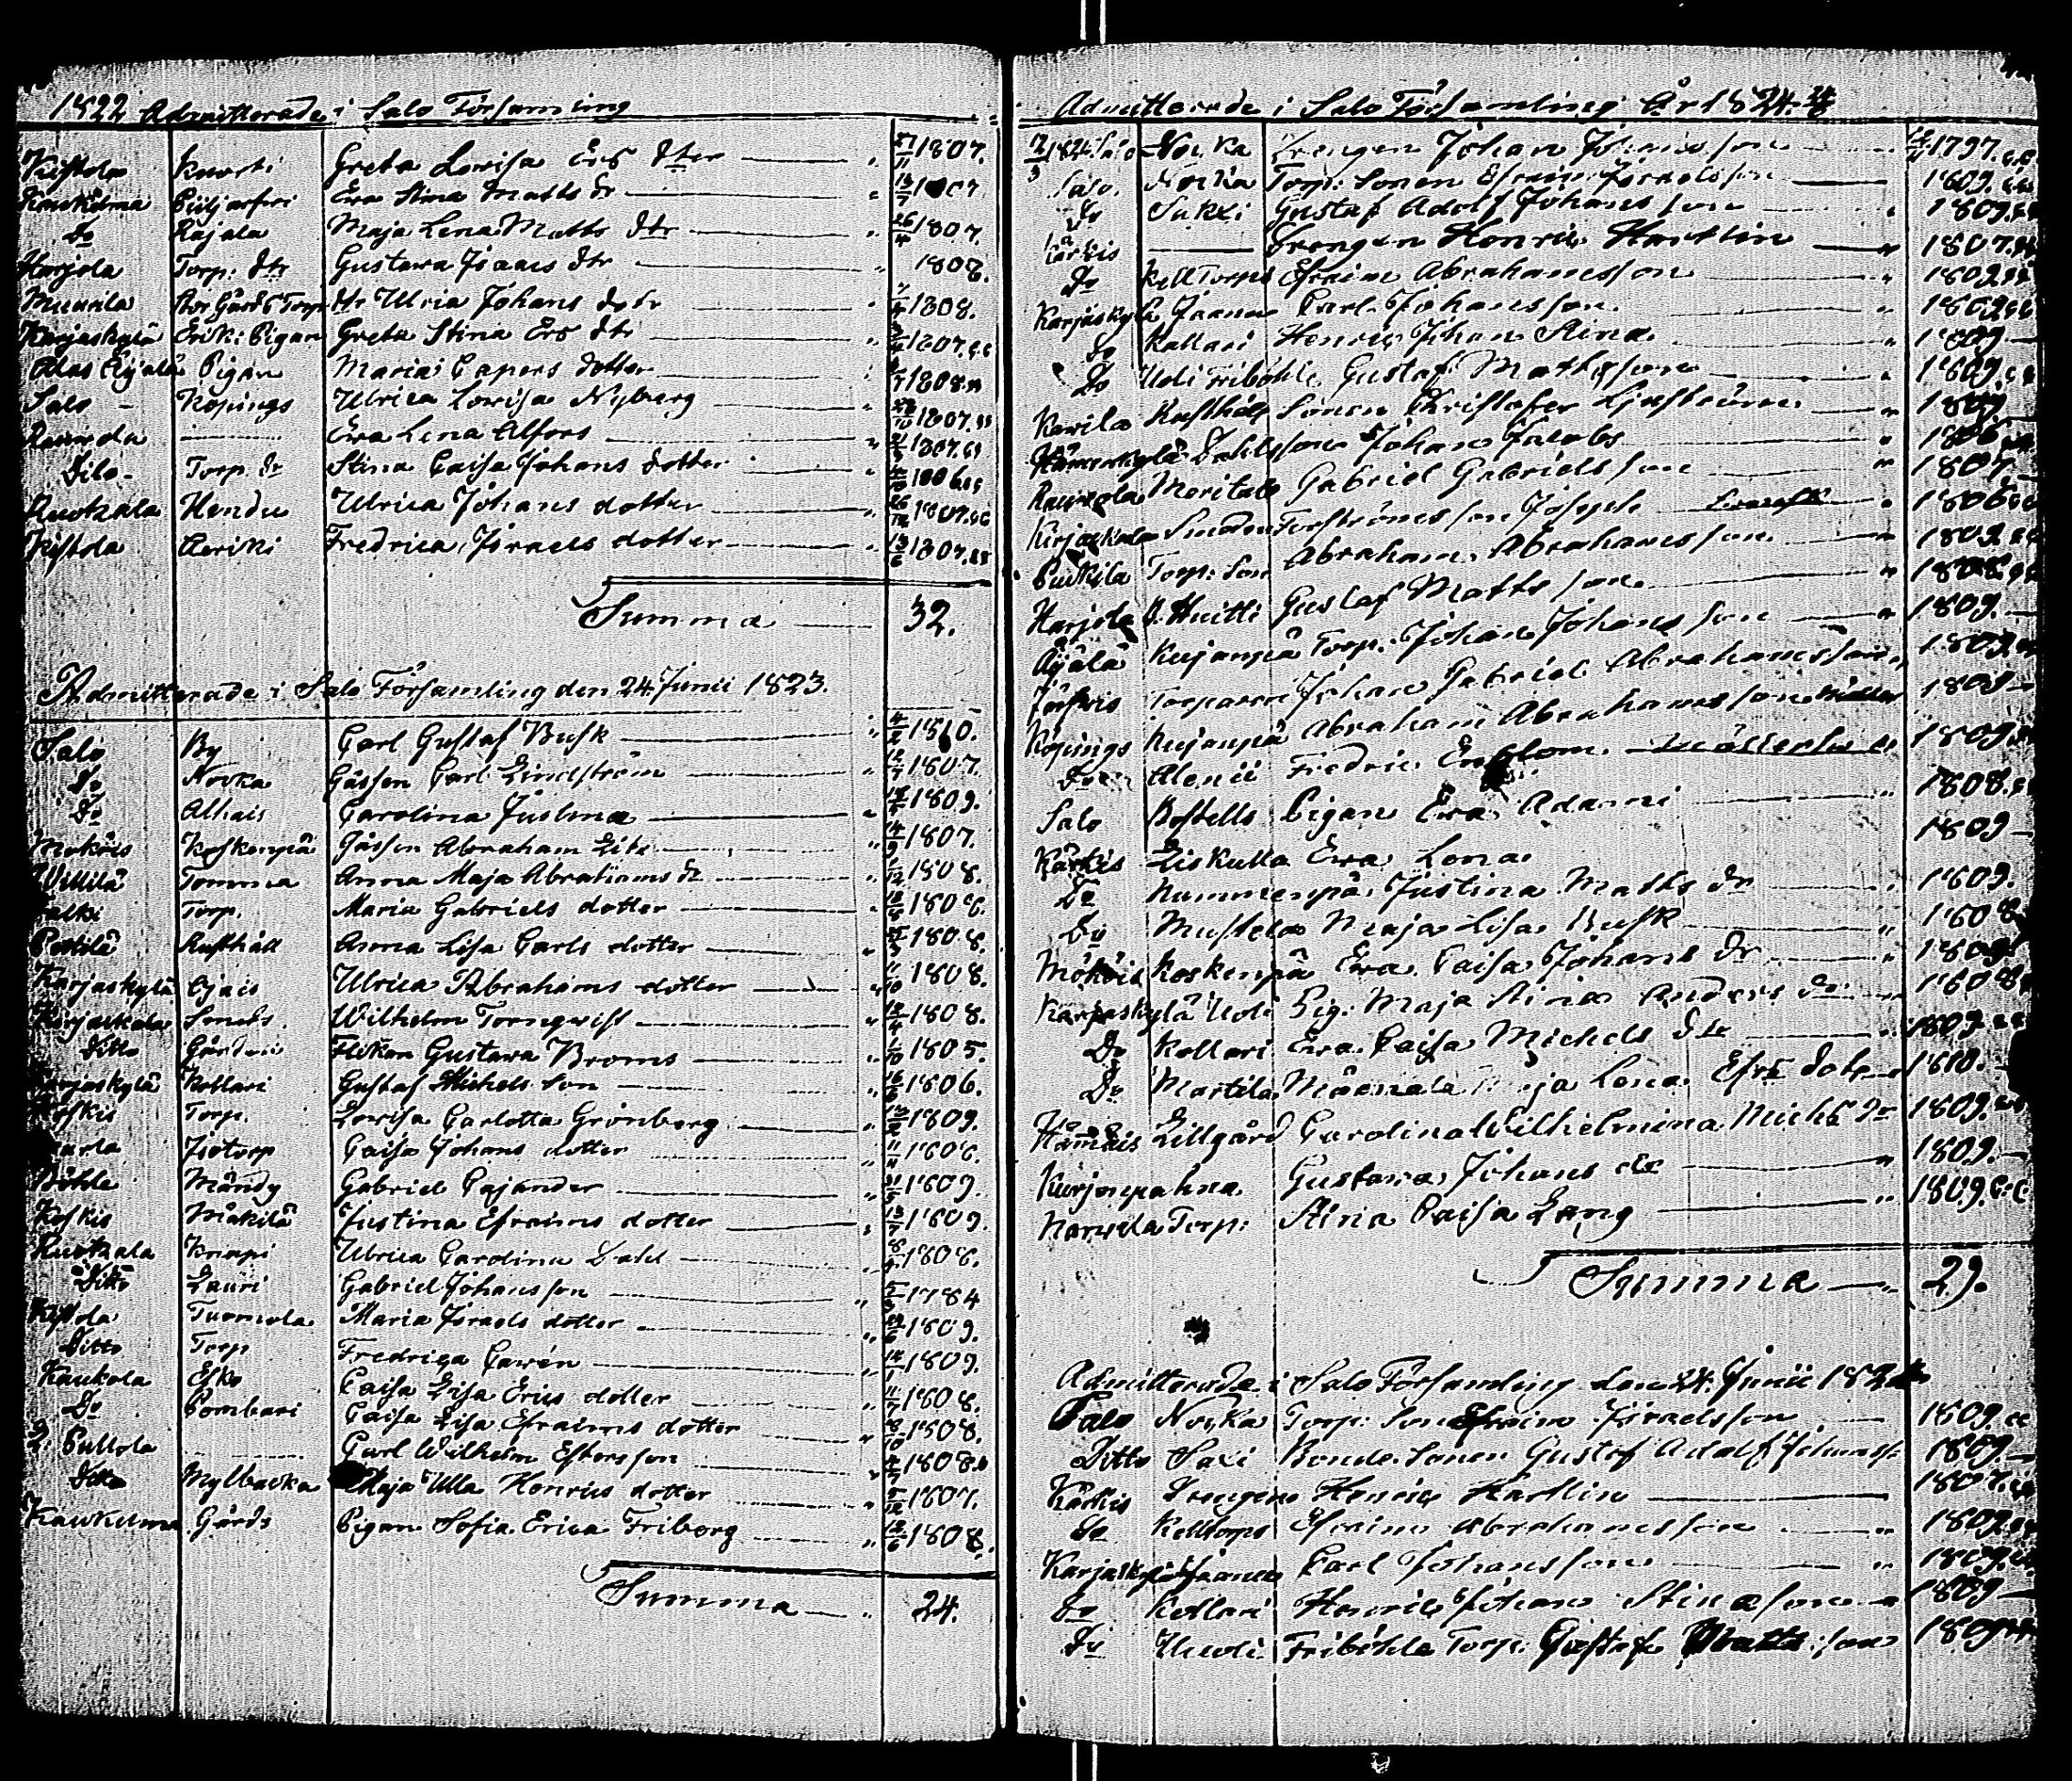 1822 Admitterade i Salo Församling
Kistola Knorti Greta Lovisa Ers dter 1807.
Kaukelma Eva Stina Matts dr 1807
Do Rajala Maja Lena Matts dtr 26/4 1807.
Harjola Torp: dtr Gustava Isaacs dtr 1808.
Munnila dtr Ulrica Johans dotr 1808.
Karjaskylä Erik: Pigan Greta Stina Ers dtr 1807.
Alas Äijälä Pigan Maria Capers dotter 1808
Salo Köpings Ulrica Lovisa Nyberg 1807.
Eva Lena Alfors 1807.
Torp. dr Stina Caisa Johans dotter 1806
Ruotkala Hendu Ulrica Johans dotter 1807.
Kistola Aeriki Fredrica Israels dotter 1807.
Summa 32.
Admitterade i Salo Församling den 24 Junii 1823.
Salo By Carl Gustaf Busk 1810.
Do Novka Gässen Carl Lindström 1807.
Do Alhais Carolina Juslina 1809.
Koskenpä Gässen Abraham 1807.
Villilä Tomma Anna Maja Abrahams dr 1808.
Torp. Maria Gabriels dotter 1808.
Pertilä Rusthåll Anna Lisa Carls dotter 1808.
Karjaskylä Ojais Ulrica Abrahams dotter 1808.
Kirjaskala Smeds Wilhelm Tornqvist 1808.
Ditto Gården Flikan Gustava Broms 1805.
Karjaskylä Kollari Gustaf Michels son 1806.
Koskis Torp. Lovisa Carlotta Grönberg 1809.
Caisa Johans dotter 1808.
Böhle Mändy Gabriel Cajander 1809.
Koskis Mäkilä Justina Efraims dotter 1809.
Ruotkala Knapi Ulrica Carolina Dahl 1808.
Ditto Lauri Gabriel Johansson 1784
Kistola Tuomola Maria Israels dotter 1809.
Ditto Torp Fredrica Cawén 1809.
Kaukola Esko Caisa Lisa Erics dotter 1808.
Do Pombari Caisa Lisa Efraims dotter 1808.
Pullola Carl Wilhelm Esterson 1808.
Ditto Mylbacka Maja Ulla Henrics dotter 1807.
Kaukelma Gårds Pigan Sofia Erica Friberg 1808.
Summa 24.
Admitterade i Salo Församling År 1824.
Novka Drengen Johan Johansson 1797.
Salo. Novka Torp: Sonen Efraim Israelsson 1809.
Do Saxi Gustaf Adolf Johansson 1809.
Kärkis Drengen Henric Hartlin 1807.
Do Kelltorps Efraim Abrahamsson 1809.
Karjaskylä Jaanas Carl Johansson. 1809
Do Kollari Henric Johan Stina. 1809
Do Uoti Friböhle Gustaf Mathsson 1809.
Karvila Rusthåls Sonen Christofer 1809.
Dahls son Johan Jacobs
Moritala Gabriel Gabrielsson 1807
Kirjaskala Smeden Torströms son Joseph 1808
Torp: Son Abraham Abrahamsson 1809
Harjola Huitti Gustaf Mattsson. 1808.
Äijälä Kujanpä Torp: Johan Johansson 1809.
Torparen Johan Gabriel Abrahamsson 1809.
Köpings Kujanpä Abraham Abrahamsson 1809
Do Alenii Fredric Englom. 1809.
Salo Bostells Pigan Eva Adami 1808.
Kärkis Liskulla Eva Lena 1809
Do Nummenpä Justina Matts dr 1809.
Do Mustela Maja Lisa Busk 1808
Koskenpä Eva Caisa Johans dr 1809.
Karjaskylä Uoti Pig. Maja Stina Anders dr 1808
Do Kollari Eva Caisa Michels dtr 1809.
Do Martila Mäenala Maja Lena Efrs dotr 1810.
Lillgård Carolina Wilhelmina Michs dr 1809.
Kurjenpahna Gustava Johans dr 1809.
Karvila Torp: Stina Caisa Lang 1809.
Summa 29.
Admitterade i Salo Församling den 24. Junii 1824
Salo Novka Torp. Son Efraim Israelsson 1809.
Ditto Saxi Bonde Sonen Gustaf Adolf Johanss. 1809.
Kärkis Drengen Henric Hartlin 1807.
Do Kelltorps Efraim Abrahamsson 1809.
Karjaskylä Jaanas Carl Johansson 1809.
Do Kollari Henric Johan Stinason 1809
Do Uuoti Friböhle Torp. Gustaf Matts son 1809